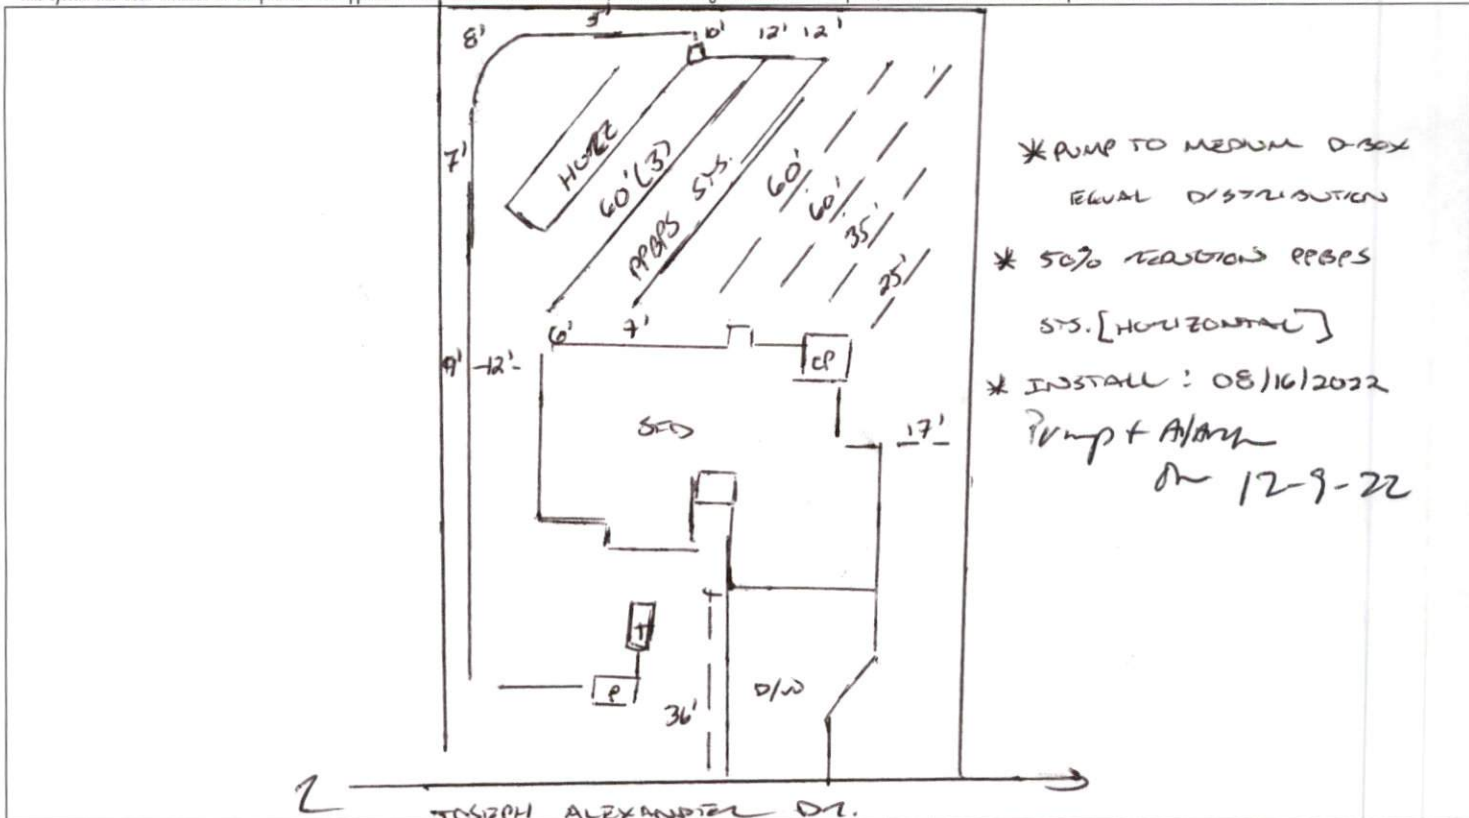 8'
5'
10'
12' 12'
7'
HORZ
60'(3)
PPBPS SYS.
60'
60'
35'
25'
6'
7'
9' -12'-
CP
SFD
17'
T
P
36'
D/W
JOSEPH ALEXANDER DR.
* PUMP TO MEDIUM D-BOX
EQUAL DISTRIBUTION
* 50% REDUCTION PPBPS
SYS. [HORIZONTAL]
* INSTALL: 08/16/2022
Pump + Alarm
12-9-22